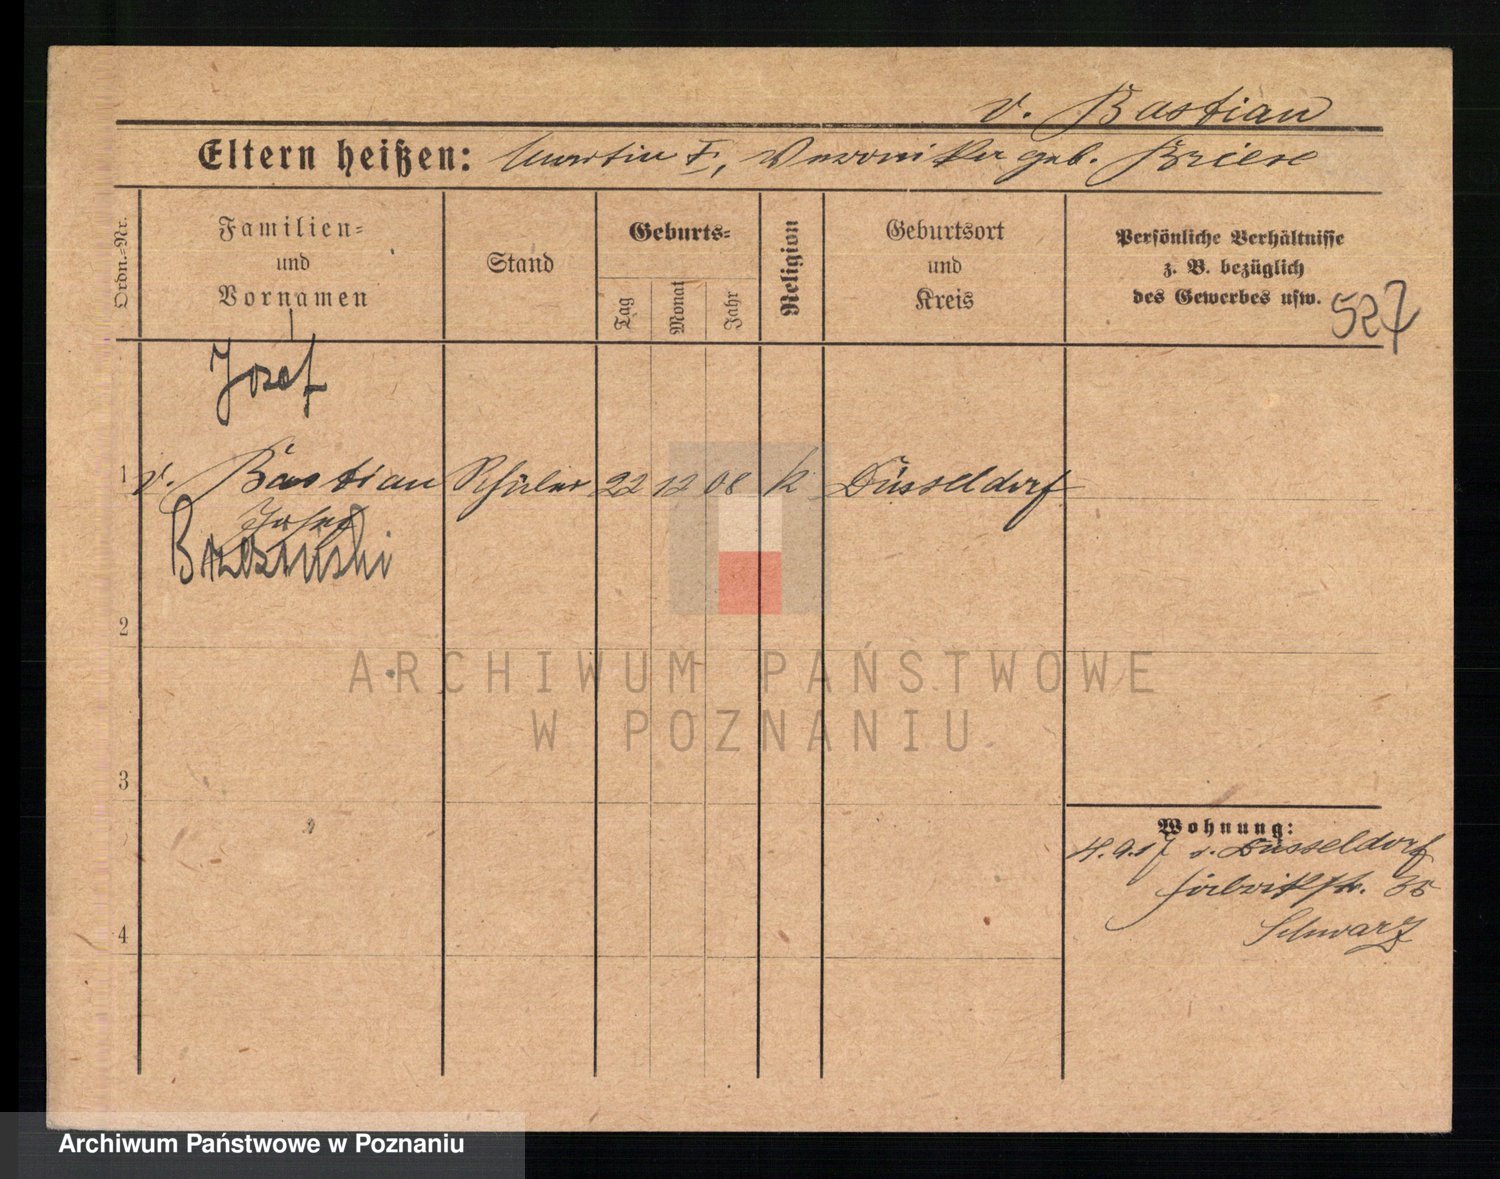 v. Bastian
Eltern heißen: Martin †, Veronika geb. Briese
Ordn.-Nr.
Familien-
und
Vornamen
Stand
Geburts-
Tag
Monat
Jahr
Religion
Geburtsort
und
Kreis
Persönliche Verhältnisse
z. B. bezüglich
des Gewerbes usw.
527
Josef
1 v. Bastian Schüler 22 12 08 k Düsseldorf
Josef
Brzezinski
2
3
4
Wohnung:
4.9.17 v. Düsseldorf
35
Schwarz
ARCHIWUM PAŃSTWOWE
W POZNANIU
Archiwum Państwowe w Poznaniu